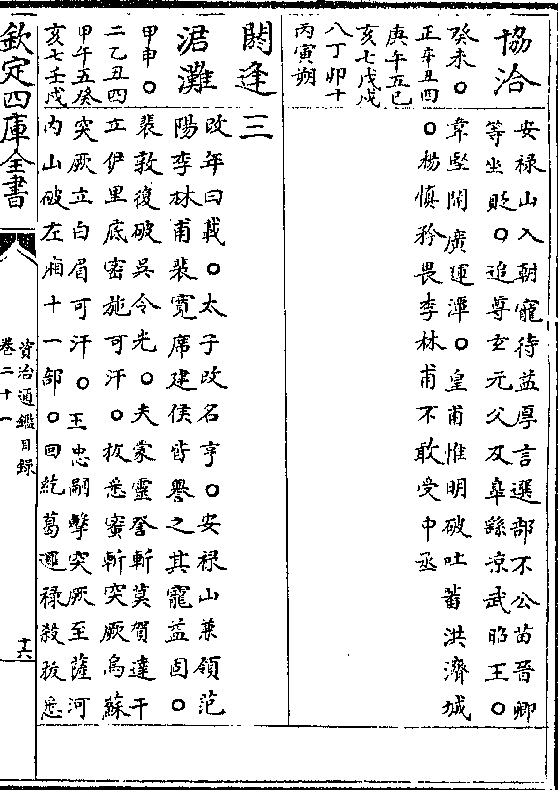 協洽
癸未○
正辛丑四
庚午五己
亥七戊戌
八丁卯十
丙寅朔
安禄山入朝寵待益厚言選部不公苗晉卿
等坐貶○追尊玄元父及臯繇涼武昭王○
韋堅開廣運潭○皇甫惟明破吐蕃洪濟城
○楊慎矜畏李林甫不敢受中丞
閼逢三
涒灘
甲申○
二乙丑四
甲午五癸
亥七壬戌
改年曰載○太子改名亨○安禄山兼領范
陽李林甫裴寛席建侯皆譽之其寵益固○
裴敦復破吳令光○夫蒙靈詧斬莫賀達干
立伊里底宻施可汗○拔悉蜜斬突厥烏蘇
突厥立白眉可汗○王忠嗣擊突厥至薩河
内山破左厢十一部○回紇葛邏禄殺拔悉
欽定四庫全書
資治通鑑目録
卷二十一
十六